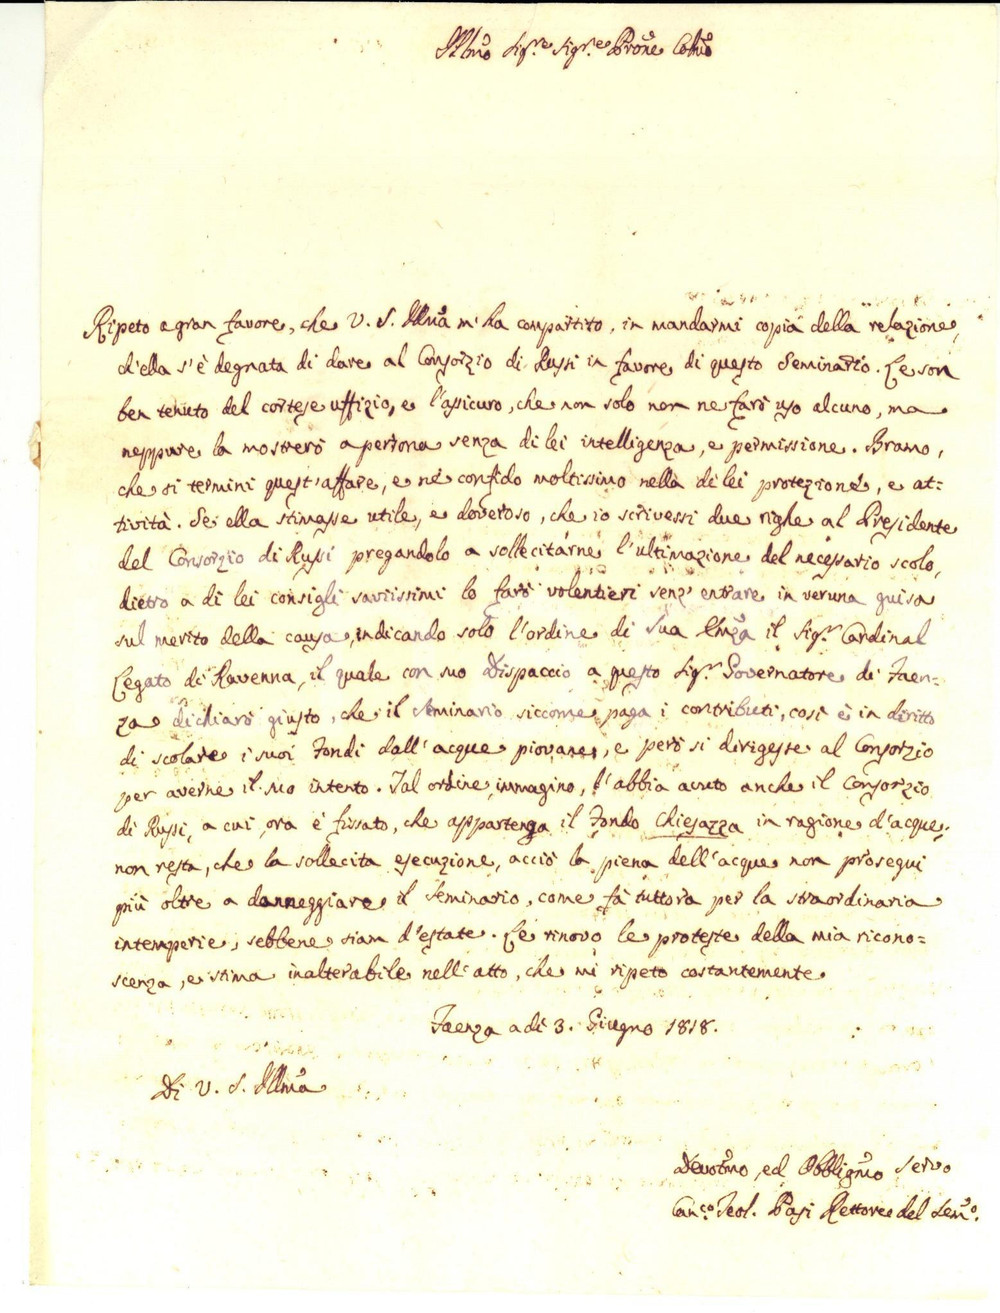 Illmo Sigre Sigre Prone Colmo
Ripeto a gran favore, che V. S. Illma m'ha compartito, in mandarmi copia della relazione,
ch'ella s'è degnata di dare al Consorzio di Russi in favore di questo Seminario. Le son
ben tenuto del cortese uffizio, e l'assicuro, che non solo non ne farò uso alcuno, ma
neppure la mostrerò a persona senza di lei intelligenza, e permissione. Bramo,
che si termini quest'affare, e ne confido moltissimo nella di lei protezione, e at=
tività. Se ella stimasse utile, e doveroso, che io scrivessi due righe al Presidente
del Consorzio di Russi pregandolo a sollecitarne l'ultimazione del necessario scolo,
dietro a di lei consigli saviissimi lo farò volentieri senz'entrare in veruna guisa
sul merito della causa, indicando solo l'ordine di Sua Emza il Sigr Cardinal
Legato di Ravenna, il quale con suo Dispaccio a questo Sigr Governatore di Faen=
za dichiarò giusto, che il Seminario siccome paga i contributi, così è in diritto
di scolare i suoi Fondi dall'acque piovane, e però si dirigesse al Consorzio
per averne il suo intento. Tal ordine, immagino, l'abbia avuto anche il Consorzio
di Russi, a cui, ora è fissato, che appartenga il Fondo Chiesazza in ragione d'acque,
non resta, che la sollecita esecuzione, acciò la piena dell'acque non prosegui
più oltre a danneggiare il Seminario, come fà tuttora per la straordinaria
intemperie, sebbene siam d'estate. Le rinovo le proteste della mia ricono=
scenza, e stima inalterabile nell'atto, che mi ripeto costantemente
Faenza adì 3. Giugno 1818.
Di V. S. Illma
Devotmo, ed Obbligmo Servo
Canco Teol. Pasi Rettore del Semo.